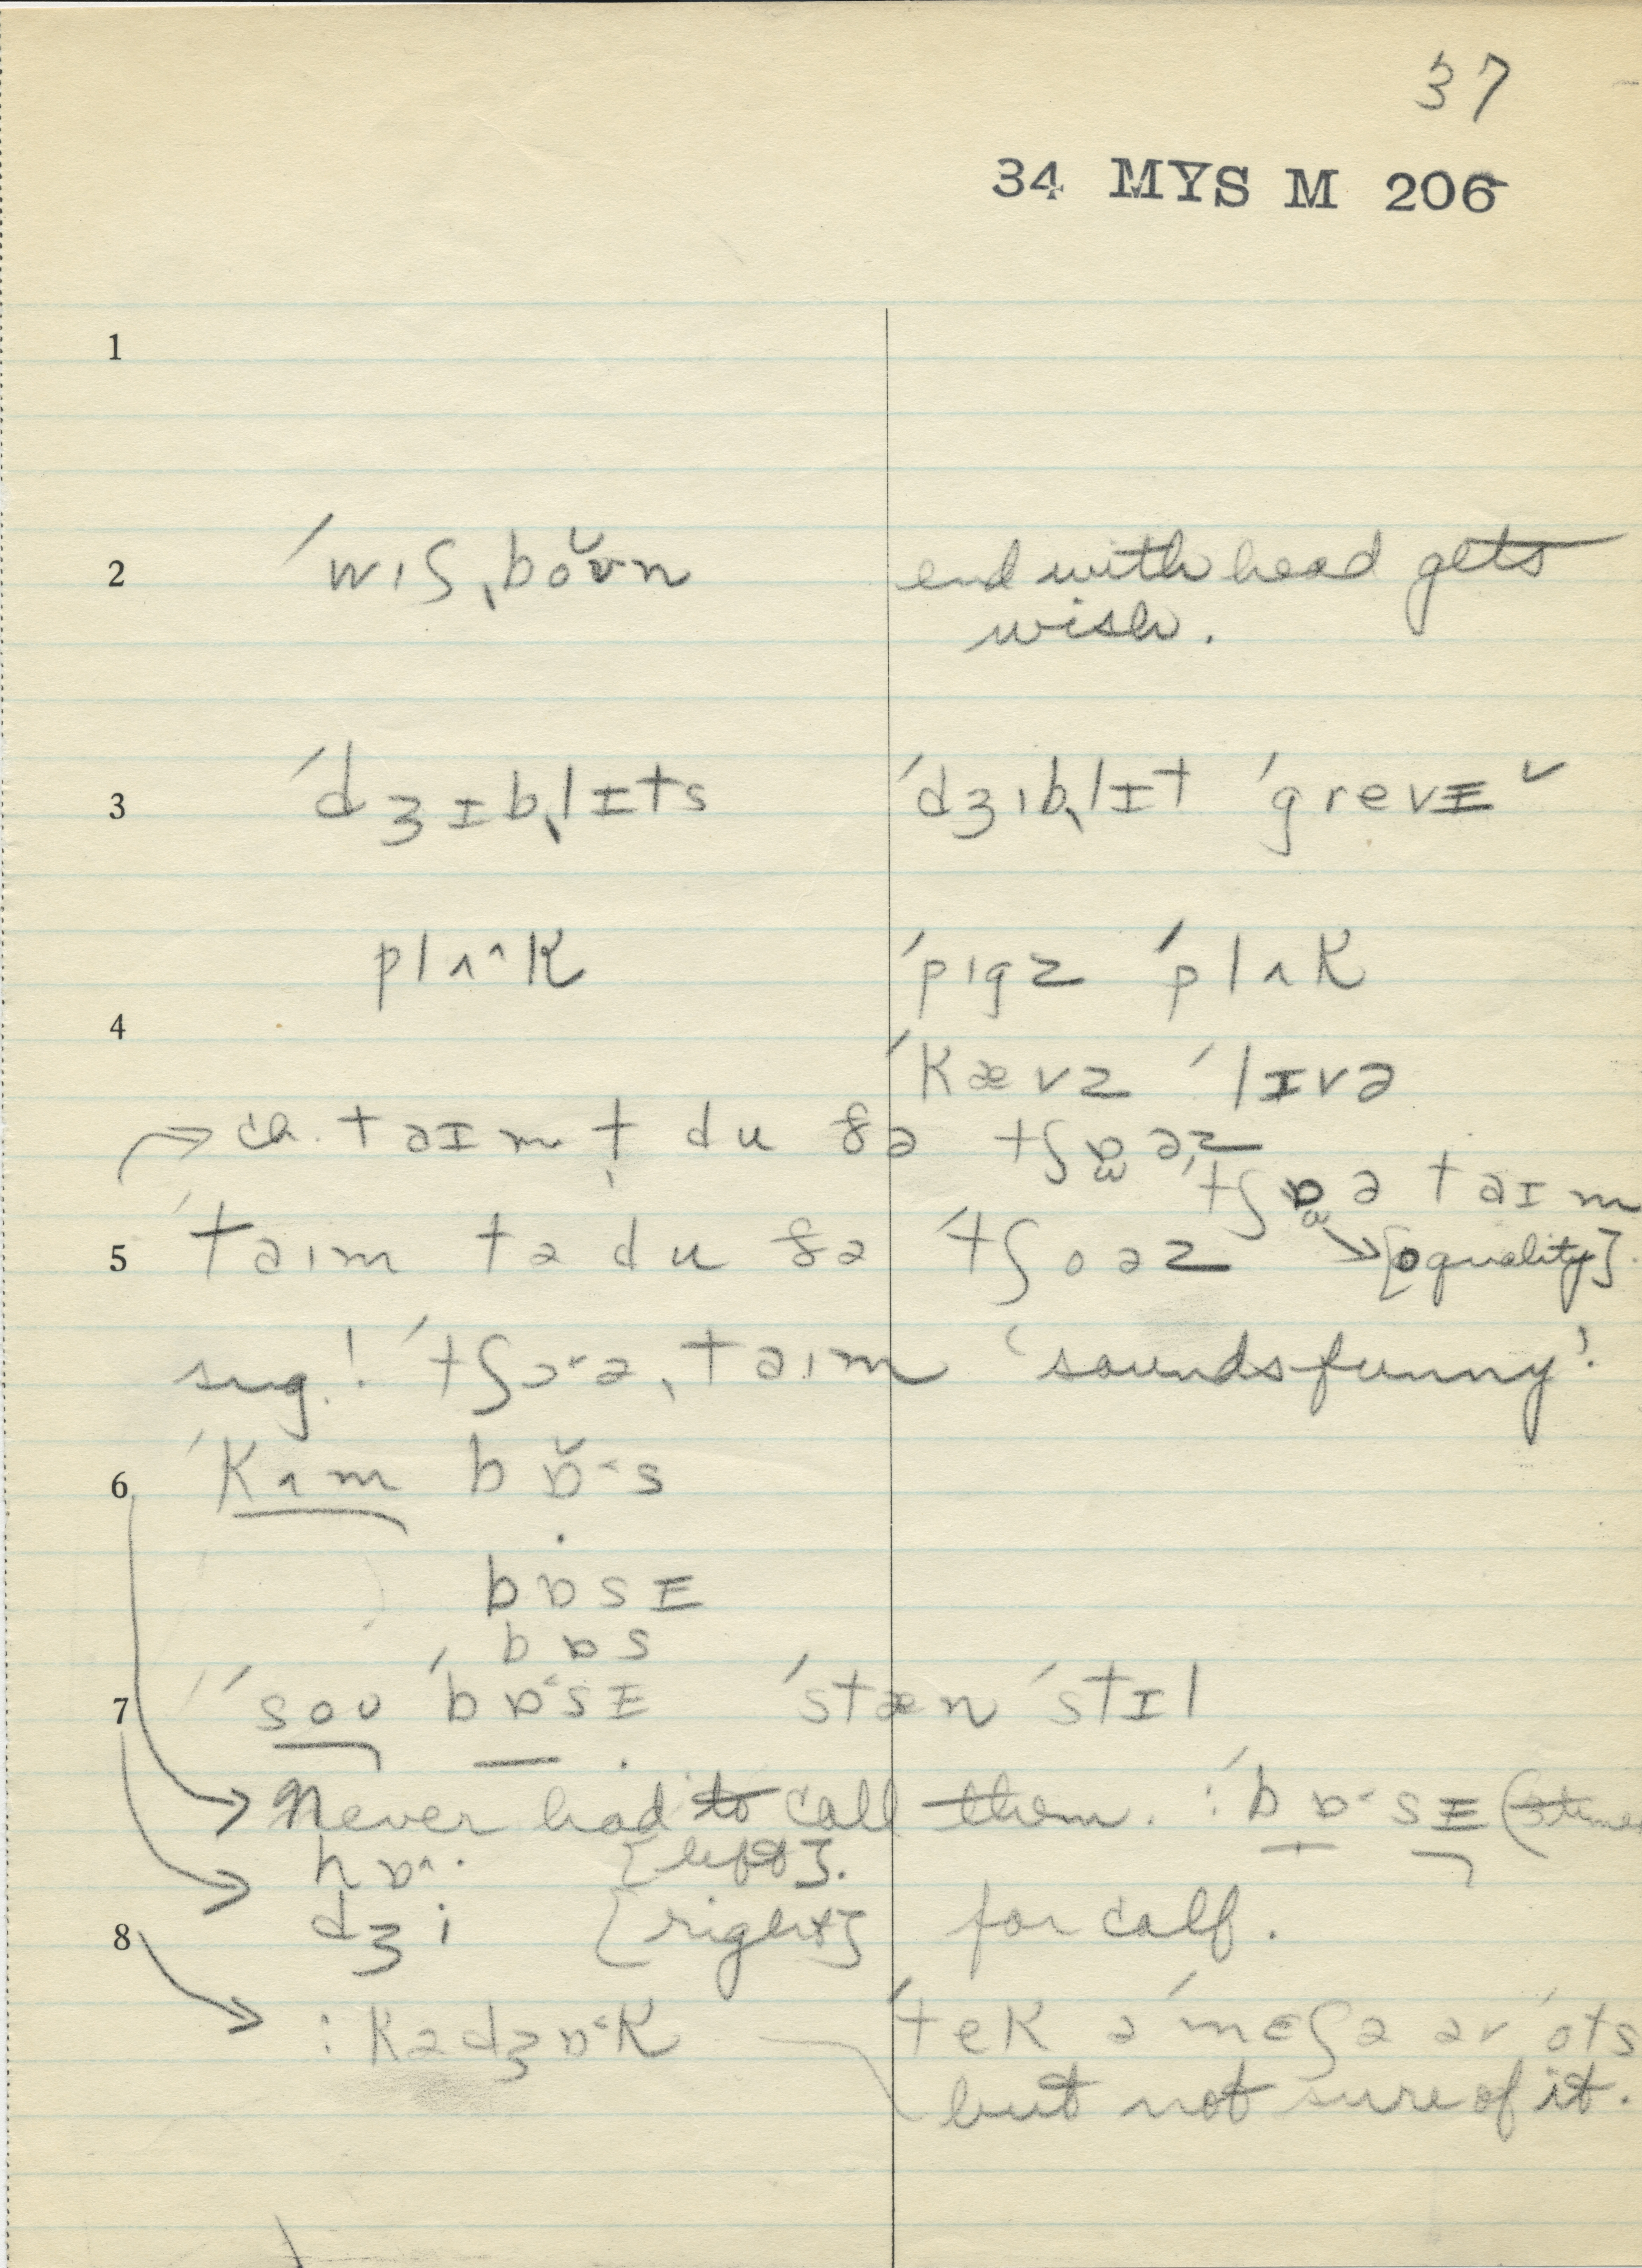 37
34 MYS M 206
1
2 ˈwɪʃˌbǒʊn end with head gets
wish.
3 ˈdʒɪbˌlɪts ˈdʒɪbˌlɪt ˈgrevɪ ˇ
plʌ^k ˈpɪgz ˈplʌk
4 ˈkævz ˈlɪvə
ca. taɪmt̩ du ðə tʃɒəz
ˈtʃɒə taɪm
5 ˈtaɪm tə du ðə ˈtʃoəz [o quality].
sug! ˈtʃɔ˞əˌtaɪm 'sounds funny'.
6 ˈkʌm bɒ̌˂s
bɒsɪ
bɒs
7 ˈsoʊ ˈbɒ˂sɪ ˈstæn ˈstɪl
Never had to call them. :ˈbɒ˂sɪ (3 times
hɒ^· [left].
dʒi [right] for calf.
8 :kədʒɒ˂k ˈtek əˈmɛʃə əv ˈots
but not sure of it.